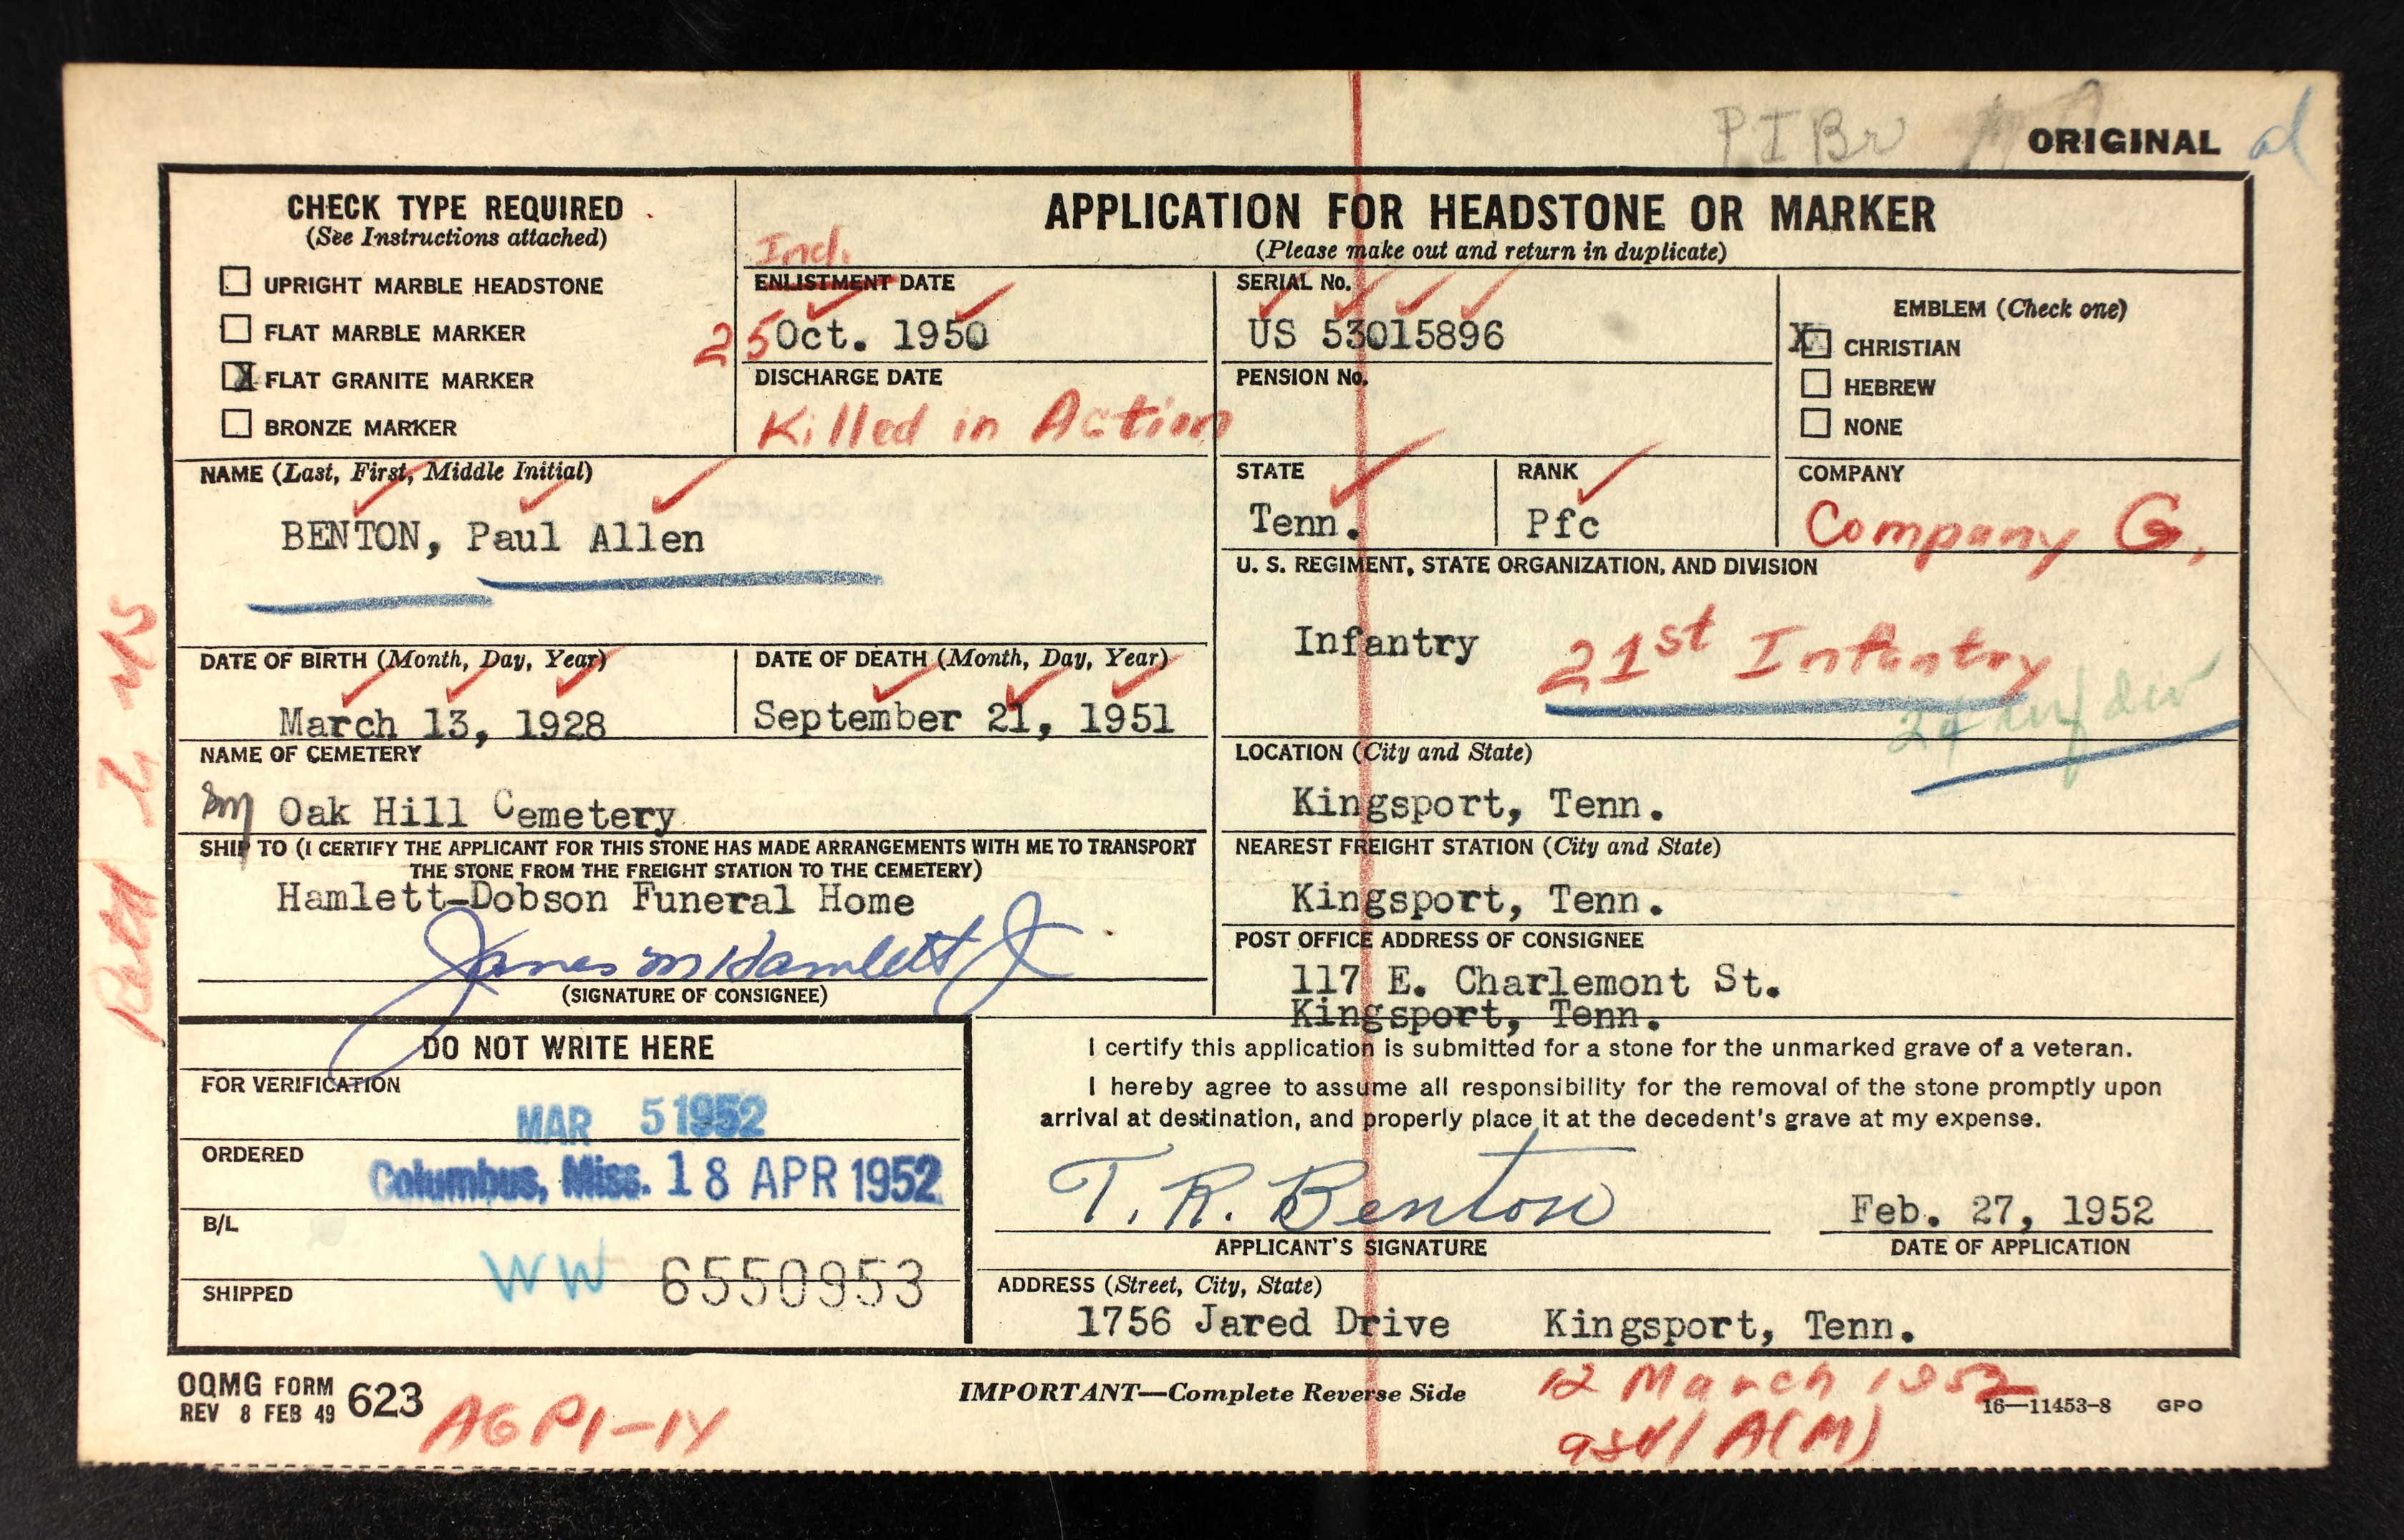 PIBr
ORIGINAL
CHECK TYPE REQUIRED
(See Instructions attached)
UPRIGHT MARBLE HEADSTONE
FLAT MARBLE MARKER
X FLAT GRANITE MARKER
BRONZE MARKER
APPLICATION FOR HEADSTONE OR MARKER
(Please make out and return in duplicate)
Ind.
ENLISTMENT DATE
25 Oct. 1950
SERIAL No.
US 53015896
EMBLEM (Check one)
X CHRISTIAN
HEBREW
NONE
DISCHARGE DATE
Killed in Action
PENSION No.
NAME (Last, First, Middle Initial)
BENTON, Paul Allen
STATE
Tenn.
RANK
Pfc
COMPANY
Company G,
U. S. REGIMENT, STATE ORGANIZATION, AND DIVISION
Infantry 21st Infantry
24 inf div
DATE OF BIRTH (Month, Day, Year)
March 13, 1928
DATE OF DEATH (Month, Day, Year)
September 21, 1951
NAME OF CEMETERY
Oak Hill Cemetery
LOCATION (City and State)
Kingsport, Tenn.
SHIP TO (I CERTIFY THE APPLICANT FOR THIS STONE HAS MADE ARRANGEMENTS WITH ME TO TRANSPORT
THE STONE FROM THE FREIGHT STATION TO THE CEMETERY)
Hamlett-Dobson Funeral Home
James M Hamlett Jr
(SIGNATURE OF CONSIGNEE)
NEAREST FREIGHT STATION (City and State)
Kingsport, Tenn.
POST OFFICE ADDRESS OF CONSIGNEE
117 E. Charlemont St.
Kingsport, Tenn.
DO NOT WRITE HERE
FOR VERIFICATION
MAR 5 1952
ORDERED
Columbus, Miss. 18 APR 1952
B/L
WW 6550953
SHIPPED
I certify this application is submitted for a stone for the unmarked grave of a veteran.
I hereby agree to assume all responsibility for the removal of the stone promptly upon
arrival at destination, and properly place it at the decedent's grave at my expense.
T. R. Benton
APPLICANT'S SIGNATURE
Feb. 27, 1952
DATE OF APPLICATION
ADDRESS (Street, City, State)
1756 Jared Drive Kingsport, Tenn.
OQMG FORM 623
REV 8 FEB 49
AGPI-14
IMPORTANT—Complete Reverse Side
12 March 1952
16—11453-8 GPO